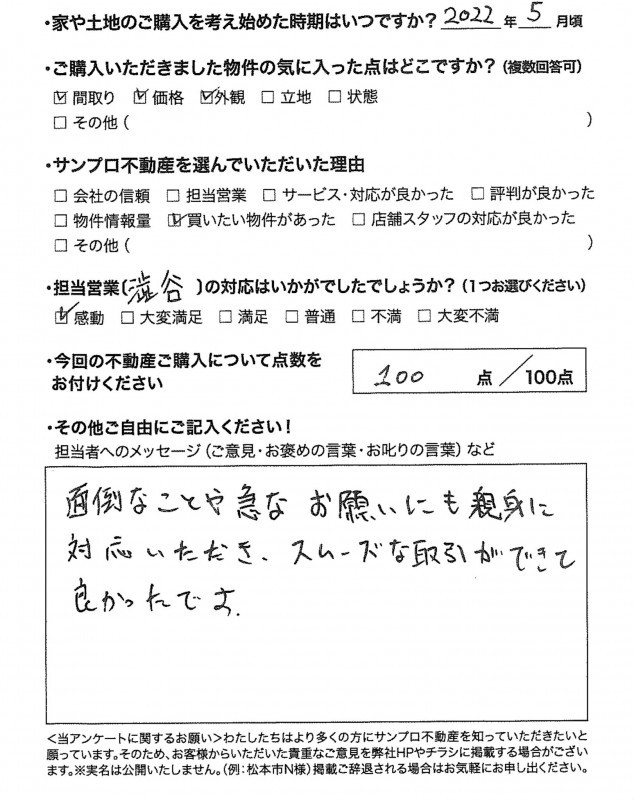 ・家や土地のご購入を考え始めた時期はいつですか？2022年5月頃
・ご購入いただきました物件の気に入った点はどこですか？（複数回答可）
☑間取り ☑価格 ☑外観 □立地 □状態
□その他（ ）
・サンプロ不動産を選んでいただいた理由
□会社の信頼 □担当営業 □サービス・対応が良かった □評判が良かった
□物件情報量 ☑買いたい物件があった □店舗スタッフの対応が良かった
□その他（ ）
・担当営業（澁谷）の対応はいかがでしたでしょうか？（1つお選びください）
☑感動 □大変満足 □満足 □普通 □不満 □大変不満
・今回の不動産ご購入について点数を
お付けください
100 点／100点
・その他ご自由にご記入ください！
担当者へのメッセージ（ご意見・お褒めの言葉・お叱りの言葉）など
面倒なことや急なお願いにも親身に
対応いただき、スムーズな取引ができて
良かったです.
＜当アンケートに関するお願い＞わたしたちはより多くの方にサンプロ不動産を知っていただきたいと
願っています。そのため、お客様からいただいた貴重なご意見を弊社HPやチラシに掲載する場合がござい
ます。※実名は公開いたしません。（例：松本市N様）掲載ご辞退される場合はお気軽にお申し出ください。